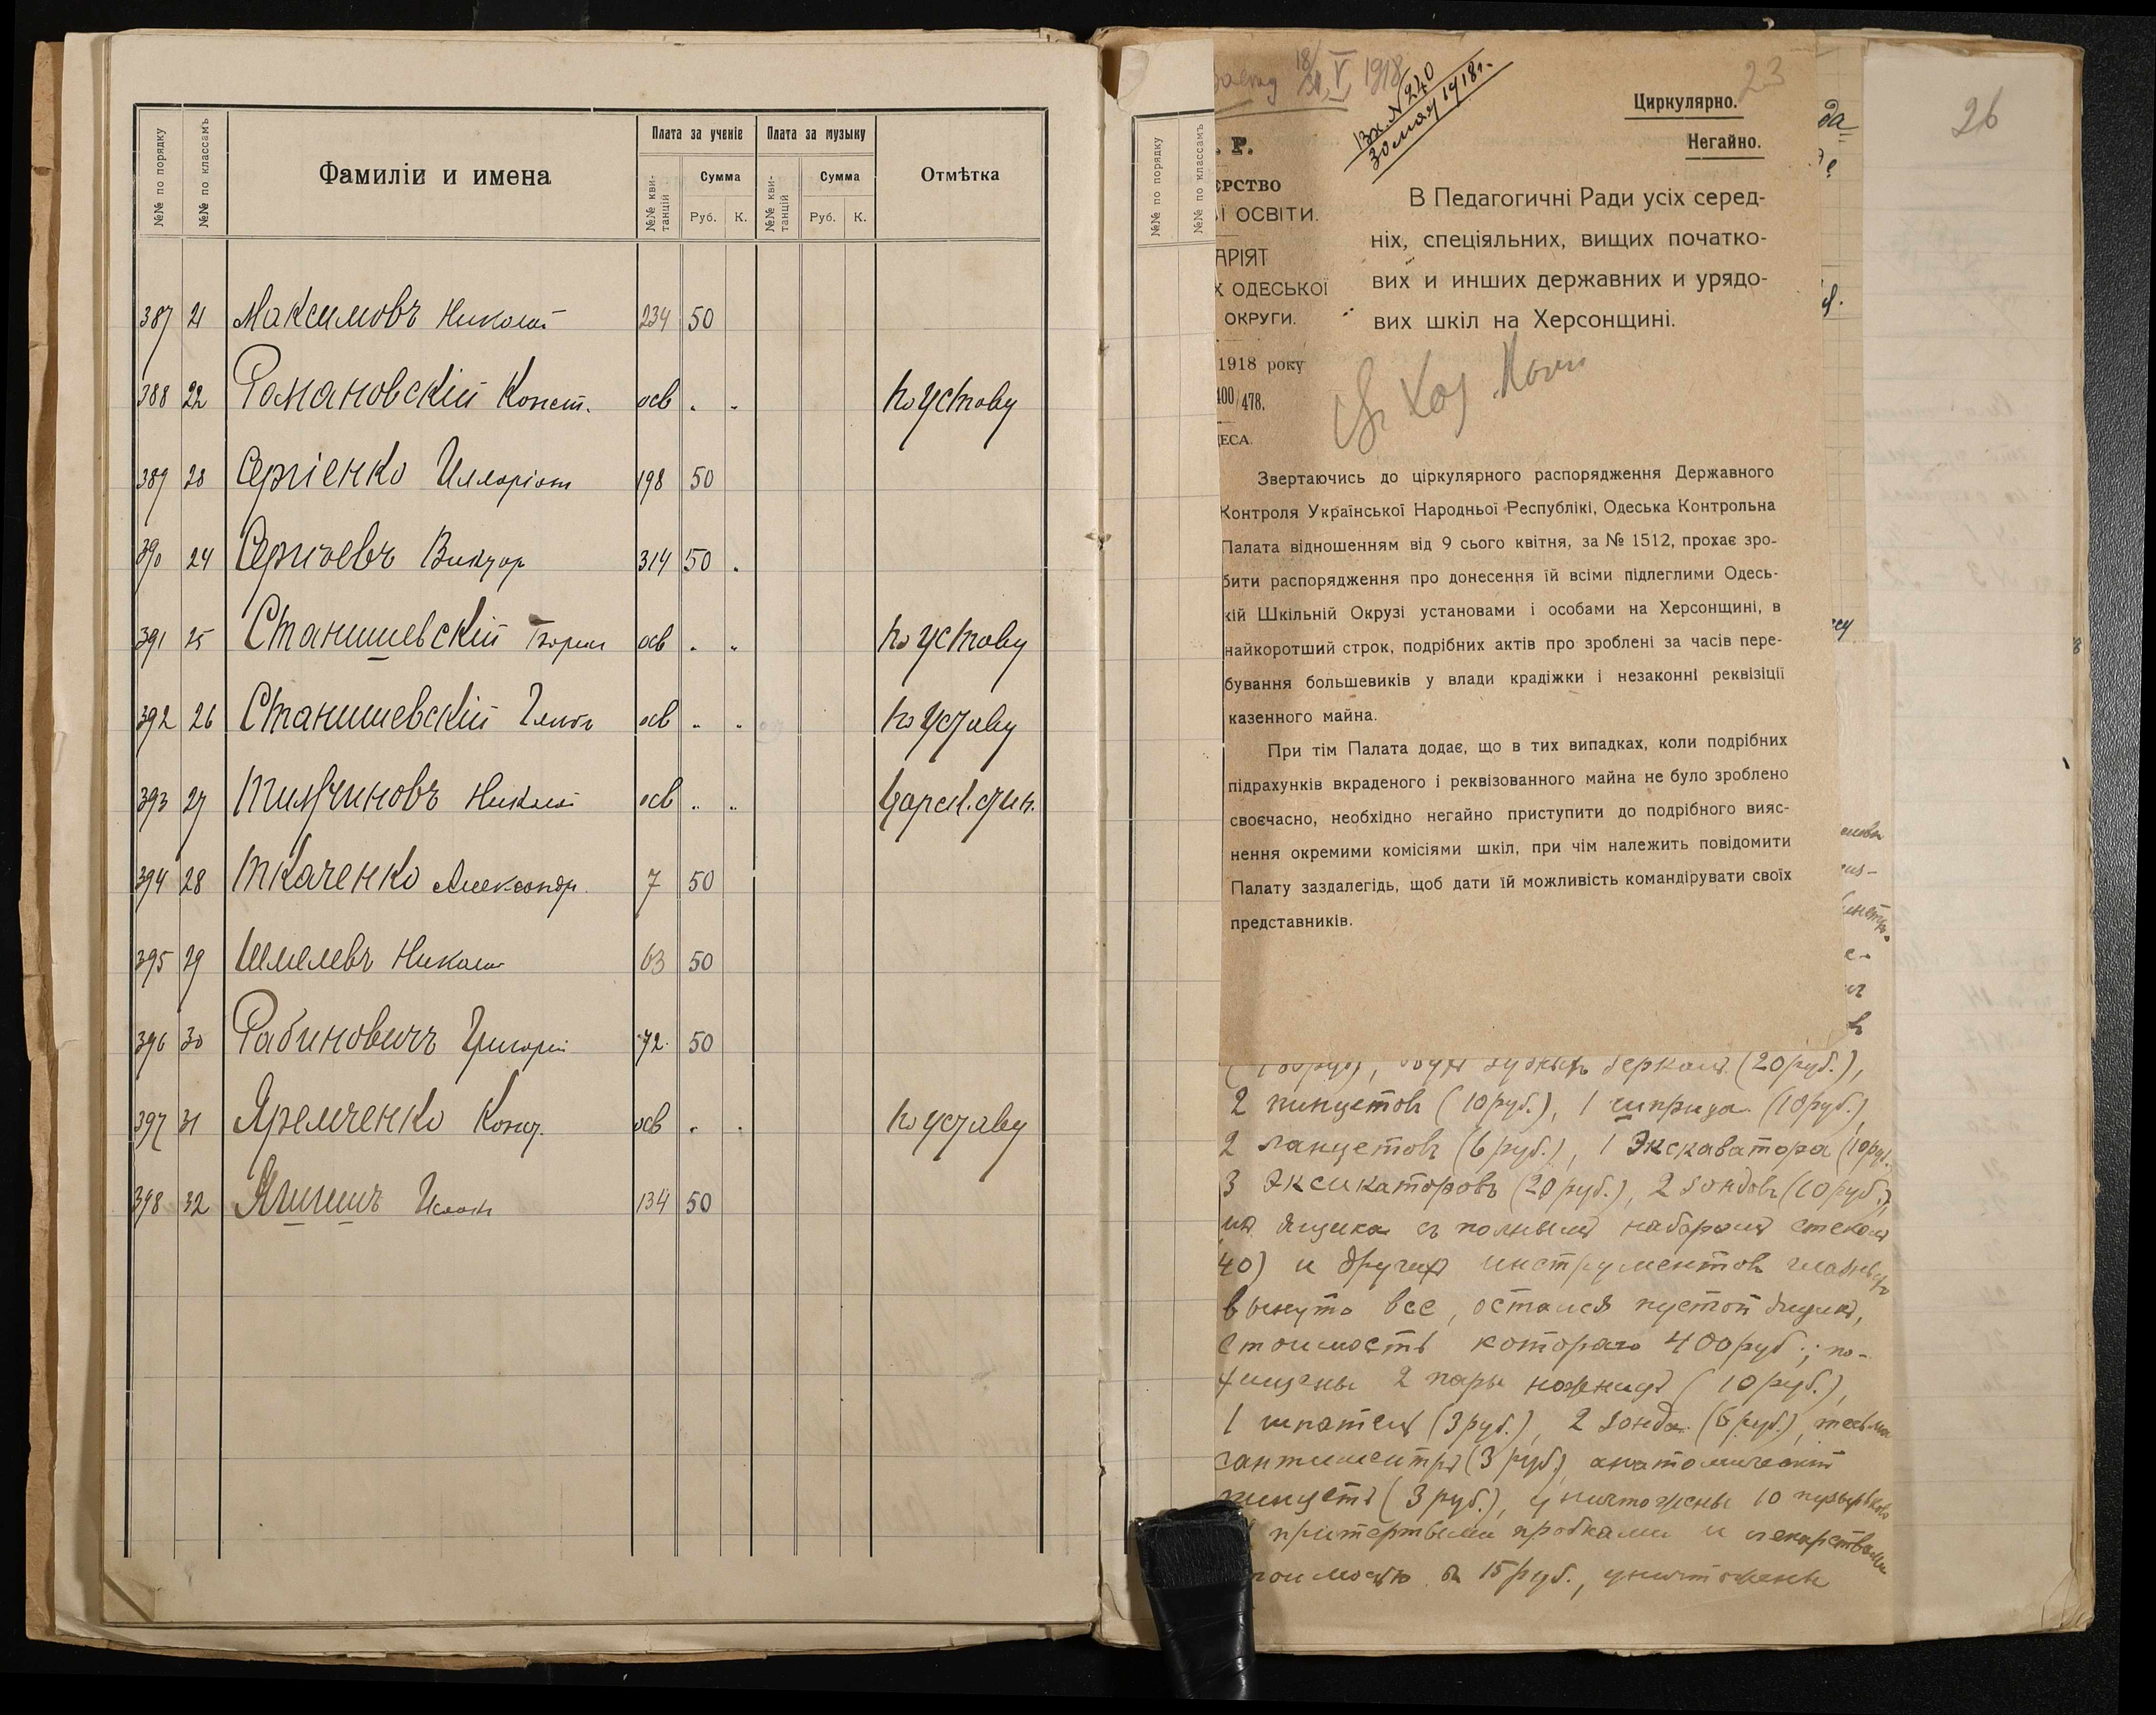 №№ по порядку
№№ по классамъ
Фамиліи и имена
Плата за ученіе
Плата за музыку
Отмѣтка
№№ кви-
танцій
Сумма
Руб. К.
№№ кви-
танцій
Сумма
Руб. К.
387 21 Максимовъ Николай 234 50
388 22 Романовскій Конст. осв . . по уставу
389 23 Сергіенко Илларіонъ 198 50
390 24 Сергѣевъ Виктор 314 50 .
391 25 Станишевскій осв . . по уставу
392 26 Станишевскій Глѣбъ осв . . по уставу
393 27 Николай осв . .
394 28 Ткаченко Александр. 7 50
395 29 Шмелевъ Николай 63 50
396 30 Рабиновичъ Григорій 72 50
397 31 Яремченко Конст. осв . . по уставу
398 32 134 50
№№ по порядку
№№ по классамъ
18/V 1918
Вх. № 240
30 мая 1918 г.
23
Циркулярно.
Негайно.
. Р.
ЕРСТВО
Ї ОСВІТИ.
АРІЯТ
Х ОДЕСЬКОЇ
ОКРУГИ.
1918 року
400/478.
ЕСА.
В Педагогичні Ради усіх серед-
ніх, спеціяльних, вищих початко-
вих и инших державних и урядо-
вих шкіл на Херсонщині.
Звертаючись до ціркулярного распорядження Державного
Контроля Української Народньої Республікі, Одеська Контрольна
Палата відношенням від 9 сього квітня, за № 1512, прохає зро-
бити распорядження про донесення їй всіми підлеглими Одесь-
кій Шкільній Окрузі установами і особами на Херсонщині, в
найкоротший строк, подрібних актів про зроблені за часів пере-
бування большевиків у влади крадіжки і незаконні реквізіції
казенного майна.
При тім Палата додає, що в тих випадках, коли подрібних
підрахунків вкраденого і реквізованного майна не було зроблено
своєчасно, необхідно негайно приступити до подрібного вияс-
нення окремими комісіями шкіл, при чім належить повідомити
Палату заздалегідь, щоб дати їй можливість командірувати своїх
представників.
зеркалъ (20 руб.),
2 пинцетовъ (10 руб.), 1 шприца (10 руб.),
2 ланцетовъ (6 руб.), 1 Экскаватора (10 руб.
3 Эксикаторовъ (20 руб.), 2 зондовъ (10 руб.),
ящика съ полнымъ наборомъ стеколъ
40) и другихъ инструментовъ
вынуто все, остался пустой ящикъ,
стоимость котораго 400 руб.; по-
хищены 2 пары ножницъ (10 руб.),
1 шпатель (3 руб.), 2 зонда (6 руб.), тесьма
сантиметръ (3 руб.) анатомическій
пинцетъ (3 руб.), уничтожены 10 пузырьковъ
притертыми пробками и лекарствами
15 руб., уничтожены
26